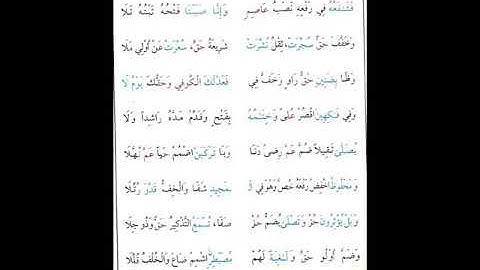 فَتَنفَعُهُ فِي رَفْعِهِ نَصْبُ عَاصِمٍ وَإِنَّا صَبَبْنَا فَتْحُهُ ثَبْتُهُ تَلَا
وَخَفَّفَ حَقٌّ سُجِّرَتْ، ثِقْلُ نُشِّرَتْ شَرِيعَةُ حَقٍّ، سُعِّرَتْ عَنْ أُولِي مَلَا
وَظَا بِضَنِينٍ حَقُّ رَاوٍ وَخَفَّ فِي فَعَدَّلَكَ الْكُوفِي وَحَقُّكَ يَوْمُ لَا
وَفِي فَٰكِهِينَ اقْصُرْ عُلىً وَخِتَٰمُهُ بِفَتْحٍ وَقَدِّمْ مَدَّهُ رَاشِداً وَلَا
يُصَلَّىٰ ثَقِيلاً ضُمَّ عَمَّ رِضىً دَنَا وَبَا تَرْكَبُنَّ اضْمُمْ حَياً عَمَّ نُهَّلَا
وَمَحْفُوظٌ اخْفِضْ رَفْعَهُ خُصَّ وَهْوَ فِي الْـ مَجِيدِ شَفَا وَالْخِفُّ قَدَّرَ رُتِّلَا
وَبَلْ يُؤْثِرُونَ حُزْ وَتَصْلَىٰ يُضَمُّ حُزْ صَفَا، تُسْمَعُ التَّذْكِيرُ حَقٌّ وَذُو جِلَا
وَضَمَّ أُولُو حَقٍّ وَلَٰغِيَةٌ لَهُمْ مُصَيْطِرٍ اشْمِمْ ضَاعَ وَالْخُلْفُ قُلِّلَا